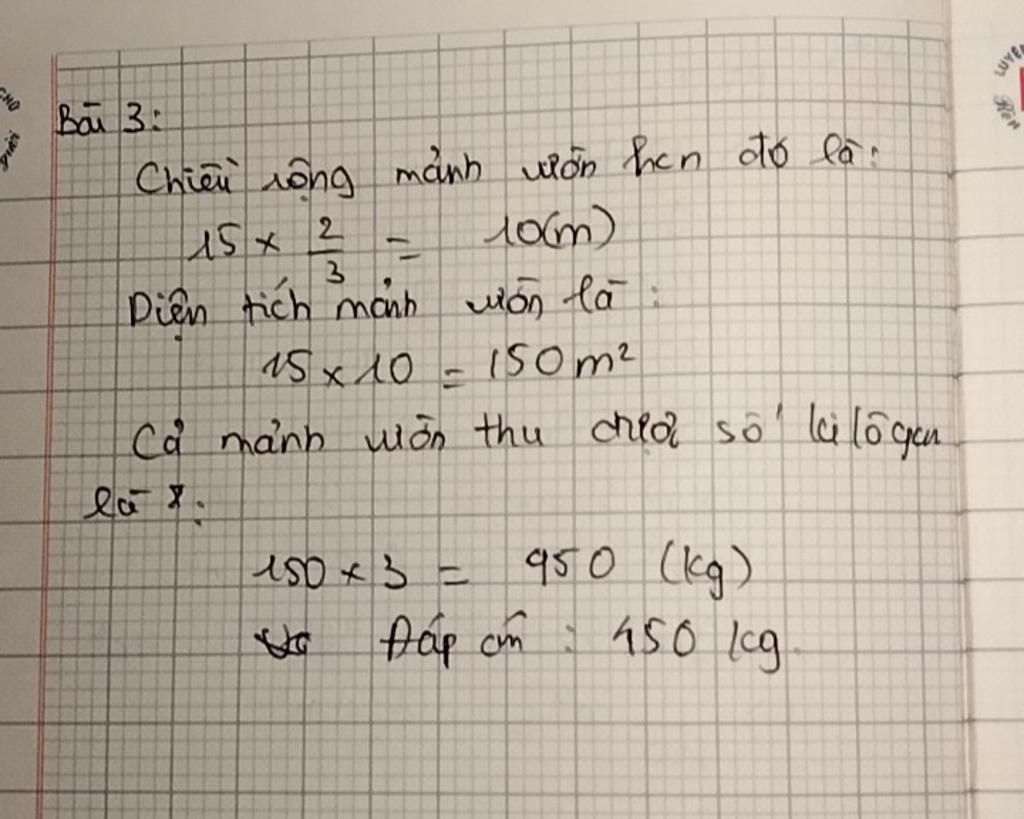 Bài 3:
Chiều rộng mảnh vườn hcn đó là:
15 × 2/3 = 10(m)
Diện tích mảnh vườn là:
15 × 10 = 150 m²
Cả mảnh vườn thu được số ki lô gam
là :
150 × 3 = 450 (kg)
Đáp án : 450 kg.
LUYỆN